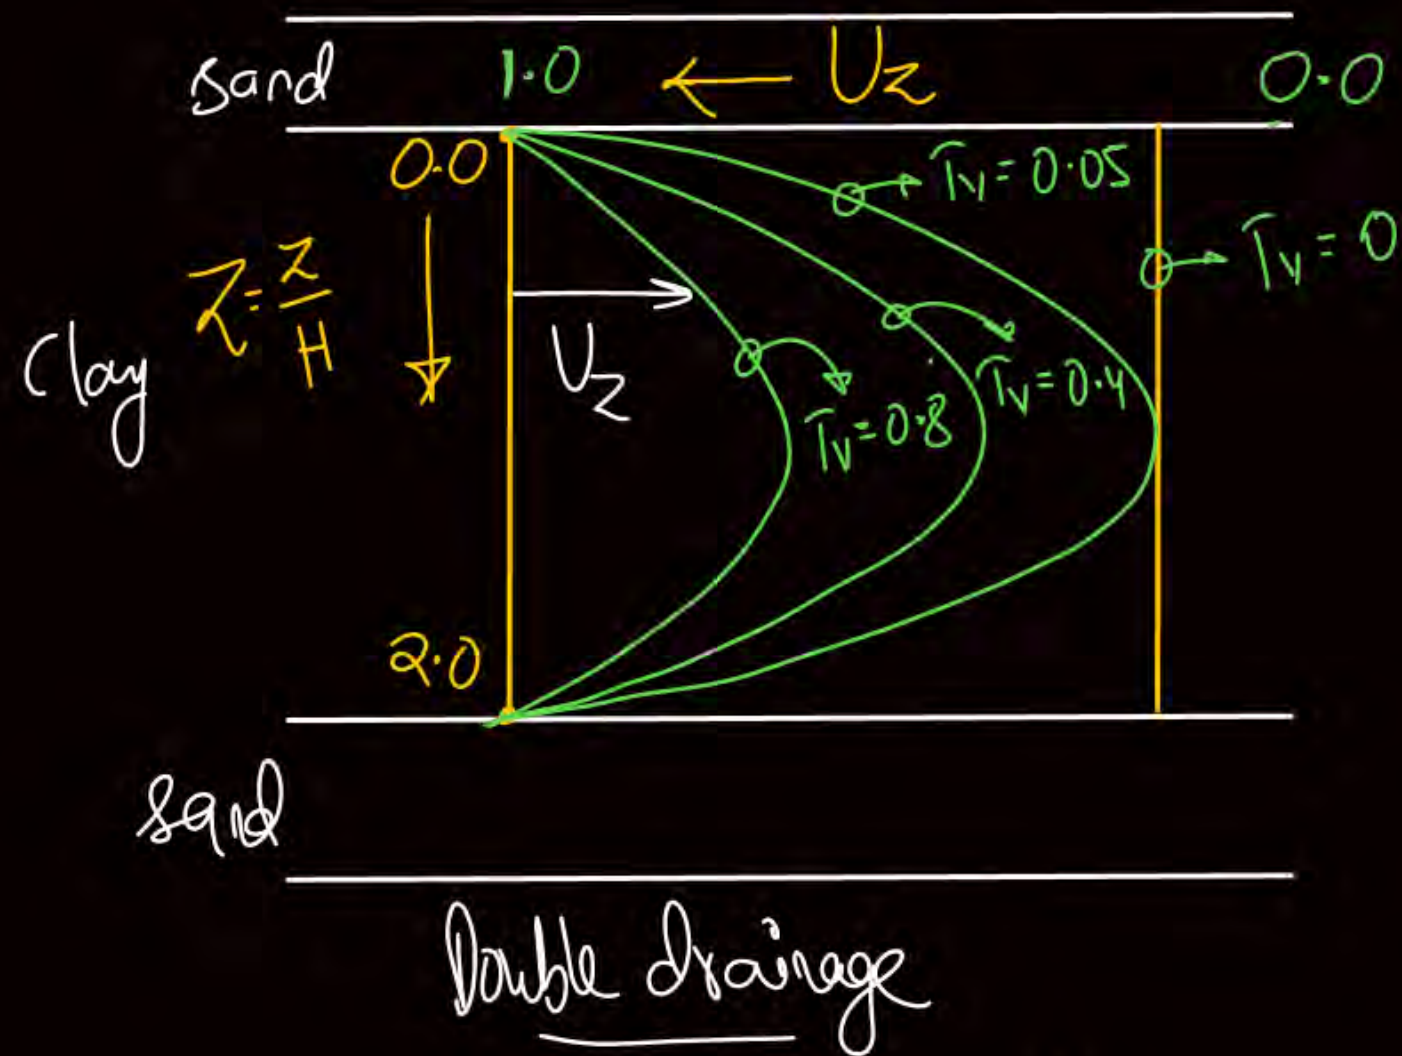 sand 1.0 ← Uz 0.0
0.0
Tv = 0.05
Tv = 0
Z = z/H
Clay
Uz
Tv = 0.4
Tv = 0.8
2.0
sand
Double drainage